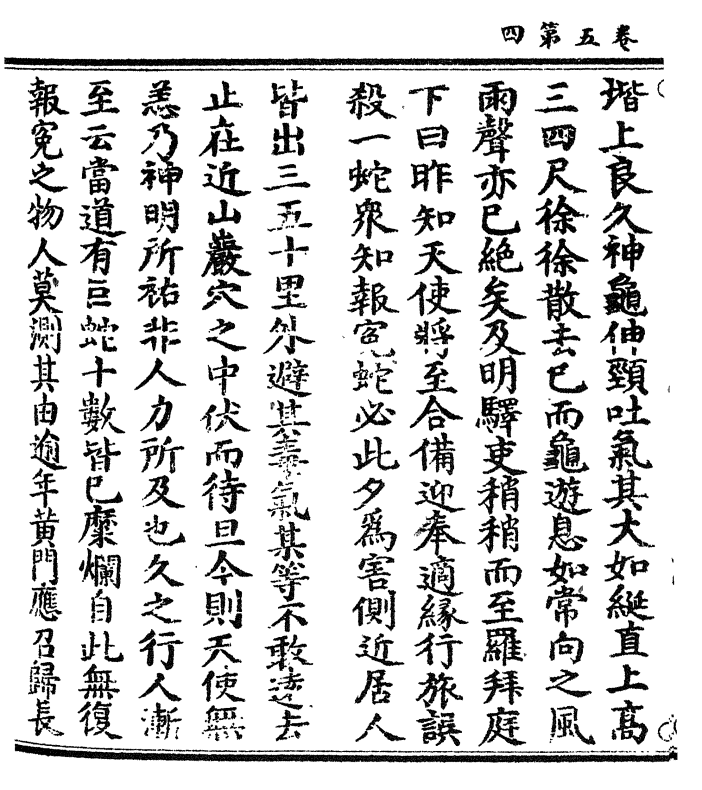 卷五第四
堦上良久神龜伸頸吐氣其大如綖直上高
三四尺徐徐散去已而龜遊息如常向之風
雨聲亦已絶矣及明驛吏稍稍而至羅拜庭
下曰昨知天使將至合備迎奉適縁行旅誤
殺一蛇衆知報寃蛇必此夕爲害側近居人
皆出三五十里外避其毒氣某等不敢遠去
止在近山巖穴之中伏而待旦今則天使無
恙乃神明所祐非人力所及也久之行人漸
至云當道有巨蛇十數皆已糜爛自此無復
報寃之物人莫測其由逾年黄門應召歸長